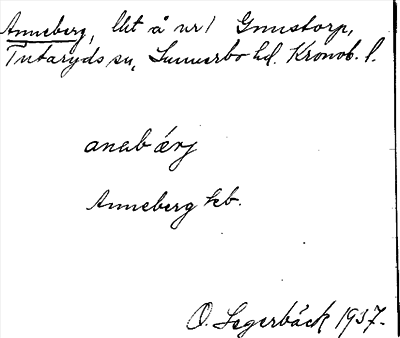 Anneberg, lht å nr 1 Gnustorp,
Tutaryds sn, Sunnerbo hd. Kronob. l.
anebærj
Anneberg kb.
O. Segerbäck 1937.